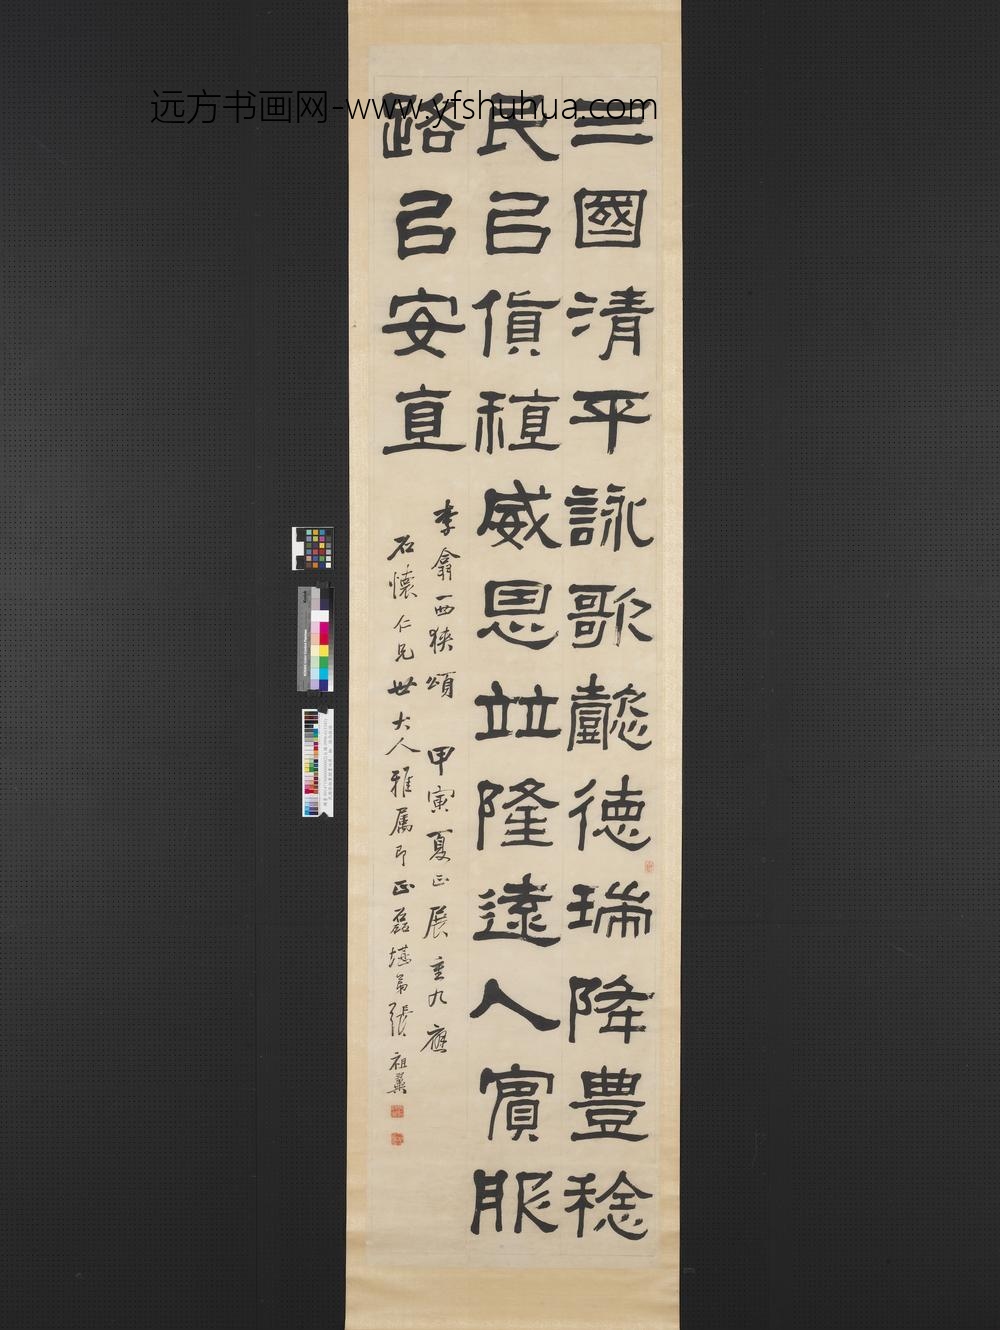 远方书画网-www.yfshuhua.com
三國清平詠歌懿德瑞降豊稔
民㠯貨稙威恩竝隆遠人賓服
路㠯安直
李翕西狹頌 甲寅夏正展重九應
石懷仁兄世大人雅属即正磊堪弟張祖翼